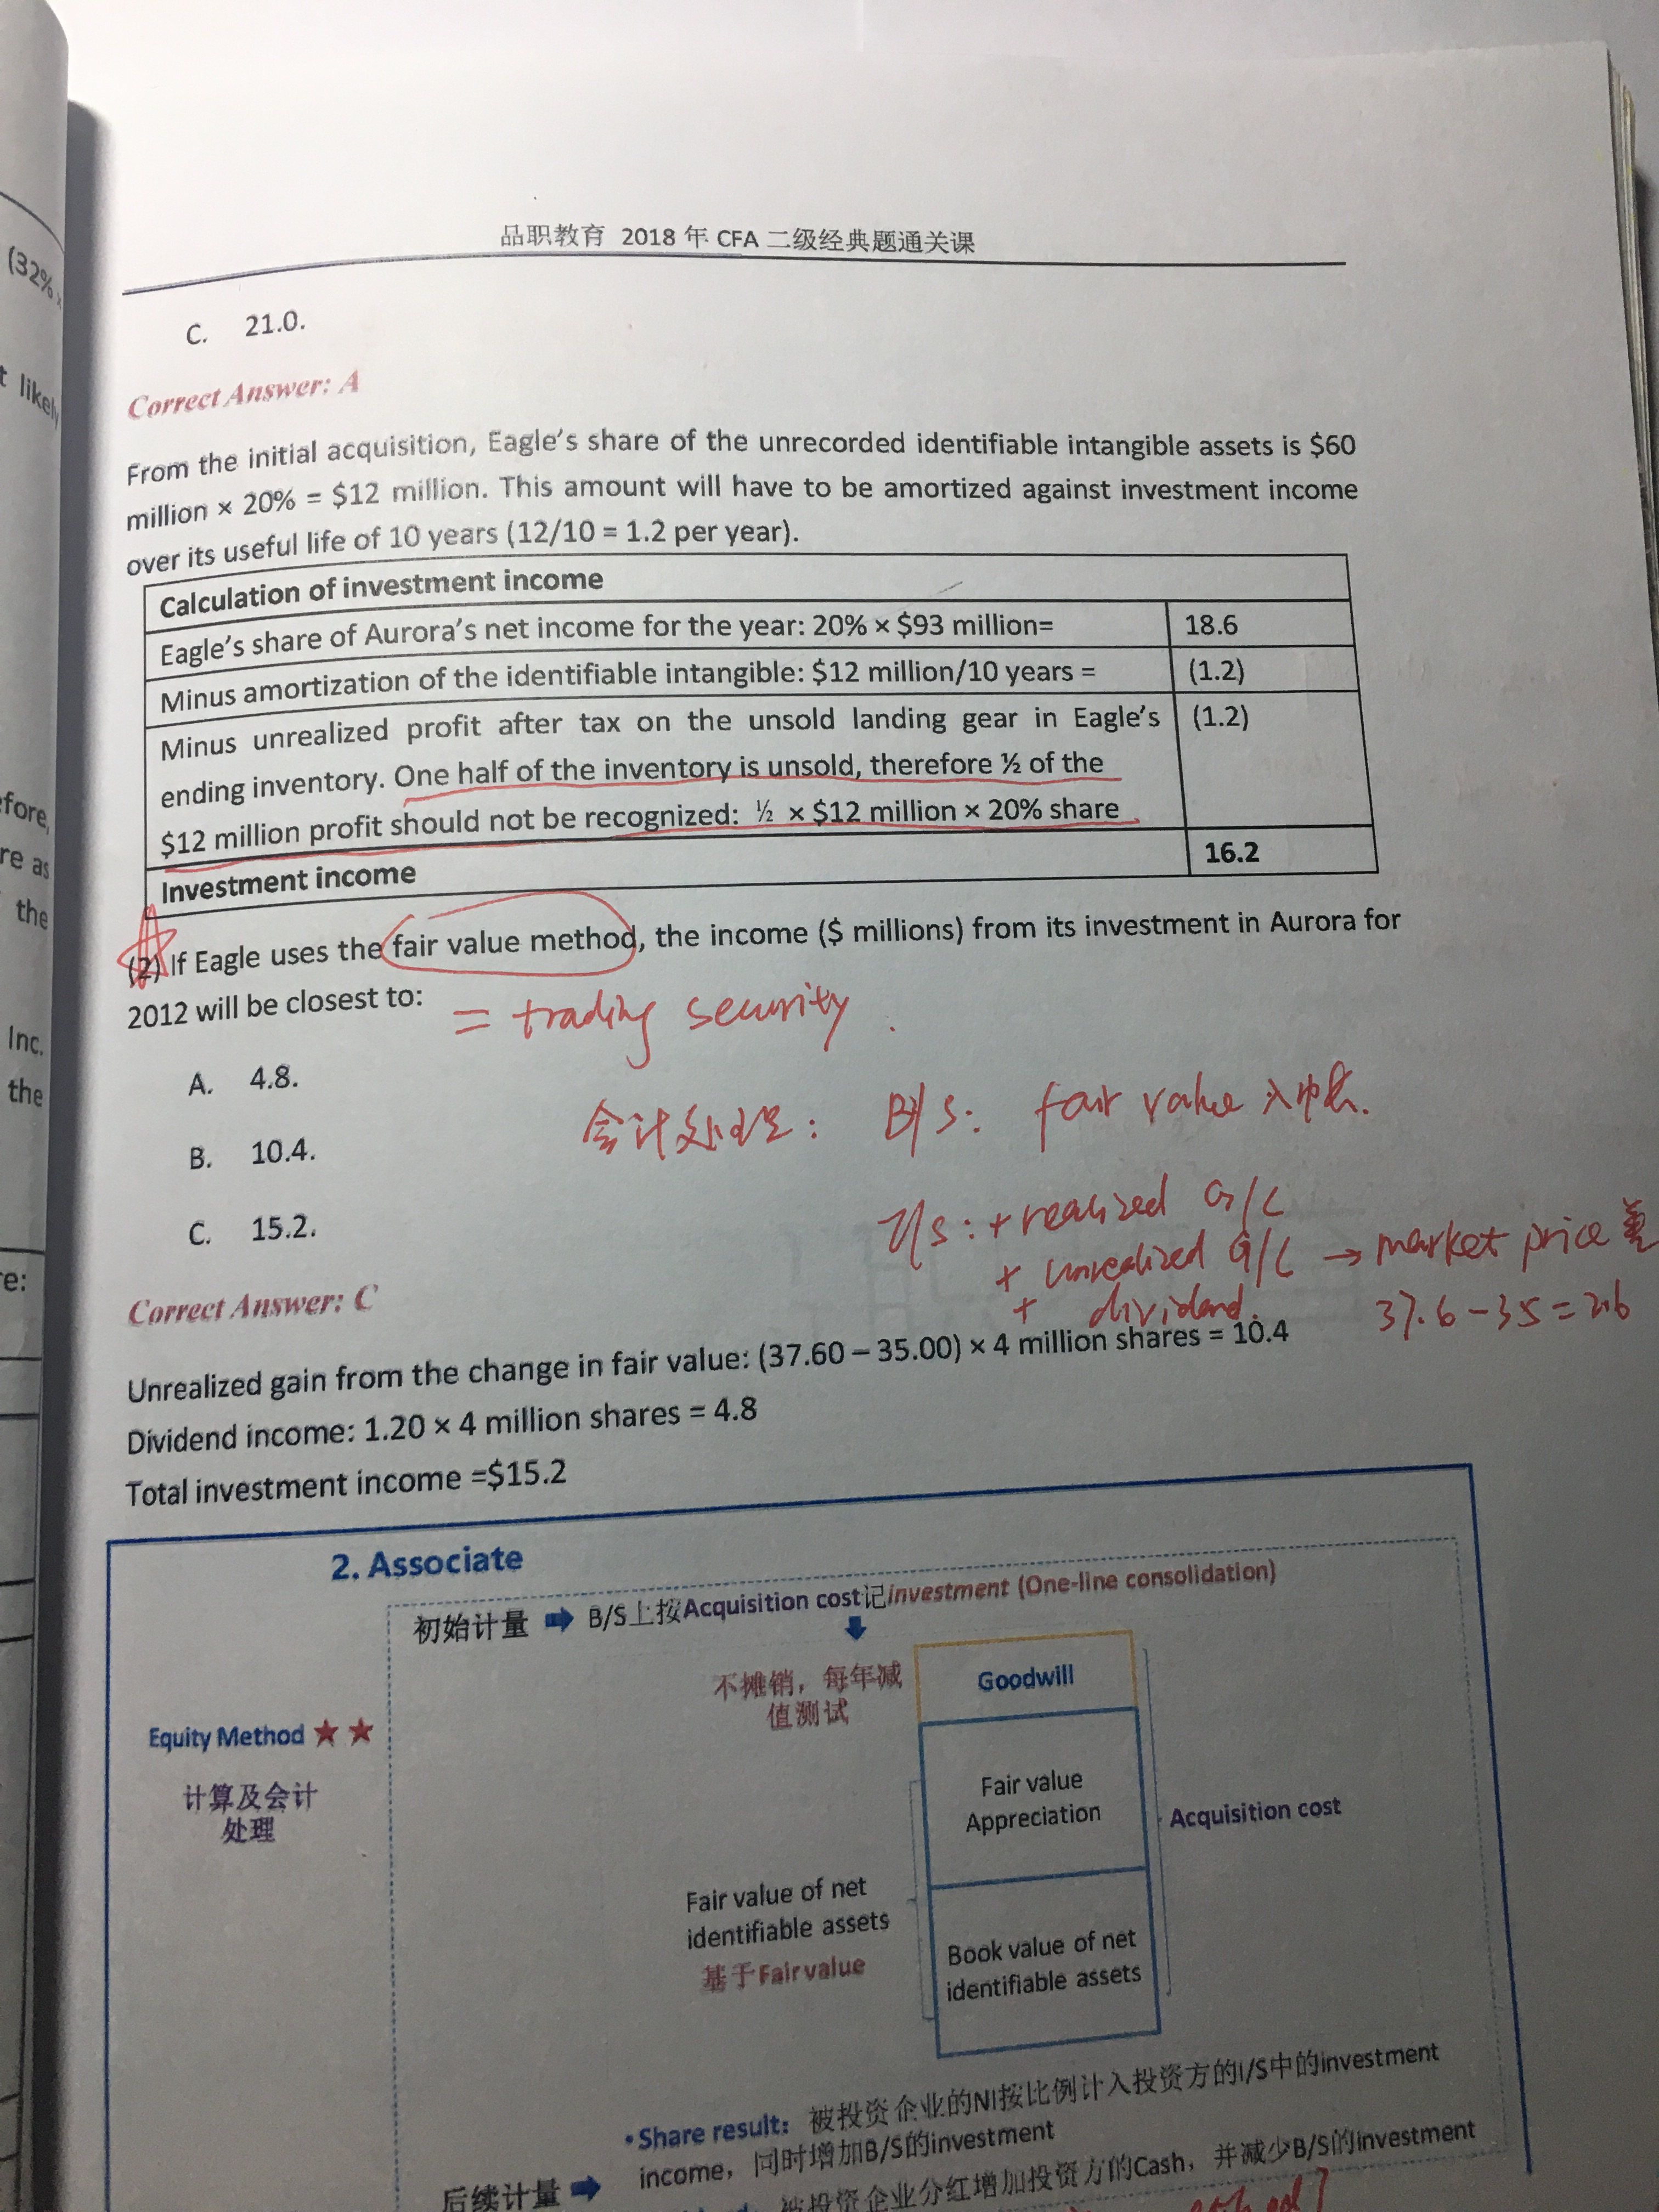 品职教育 2018 年 CFA 二级经典题通关课
(32%
t likely
efore,
re as
the
Inc.
the
re:
C. 21.0.
Correct Answer: A
From the initial acquisition, Eagle's share of the unrecorded identifiable intangible assets is $60
million × 20% = $12 million. This amount will have to be amortized against investment income
over its useful life of 10 years (12/10 = 1.2 per year).
Calculation of investment income
Eagle's share of Aurora's net income for the year: 20% × $93 million= 18.6
Minus amortization of the identifiable intangible: $12 million/10 years = (1.2)
Minus unrealized profit after tax on the unsold landing gear in Eagle's (1.2)
ending inventory. One half of the inventory is unsold, therefore ½ of the
$12 million profit should not be recognized: ½ × $12 million × 20% share
Investment income 16.2
(2) If Eagle uses the fair value method, the income ($ millions) from its investment in Aurora for
2012 will be closest to:
= trading security.
A. 4.8.
会计处理: B/S: fair value 入账.
B. 10.4.
I/S: + realized G/L
C. 15.2.
+ unrealized G/L → market price 差
+ dividend.
37.6 - 35 = 2.6
Correct Answer: C
Unrealized gain from the change in fair value: (37.60 – 35.00) × 4 million shares = 10.4
Dividend income: 1.20 × 4 million shares = 4.8
Total investment income =$15.2
2. Associate
初始计量 B/S上按Acquisition cost记investment (One-line consolidation)
不摊销，每年减
值测试
Goodwill
Equity Method ★ ★
计算及会计
处理
Fair value
Appreciation
Acquisition cost
Fair value of net
identifiable assets
基于Fair value
Book value of net
identifiable assets
•Share result: 被投资企业的NI按比例计入投资方的I/S中的investment
income，同时增加B/S的investment
后续计量
被投资企业分红增加投资方的Cash，并减少B/S的investment